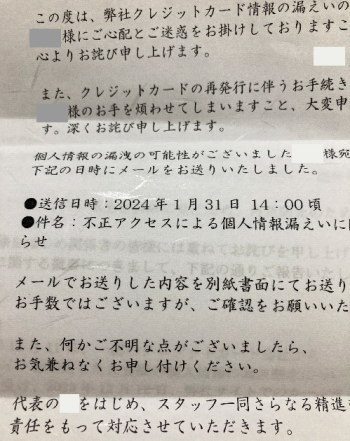 この度は、弊社クレジットカード情報の漏えいの
様にご心配とご迷惑をお掛けしておりますこ
心よりお詫び申し上げます。
また、クレジットカードの再発行に伴うお手続き
様のお手を煩わせてしまいますこと、大変申
す。深くお詫び申し上げます。
個人情報の漏洩の可能性がございました 様宛
下記の日時にメールをお送りいたしました。
●送信日時：2024年1月31日 14：00頃
●件名：不正アクセスによる個人情報漏えいに
らせ
メールでお送りした内容を別紙書面にてお送り
お手数ではございますが、ご確認をお願いいた
また、何かご不明な点がございましたら、
お気兼ねなくお申し付けください。
代表の をはじめ、スタッフ一同さらなる精進
責任をもって対応させていただきます。